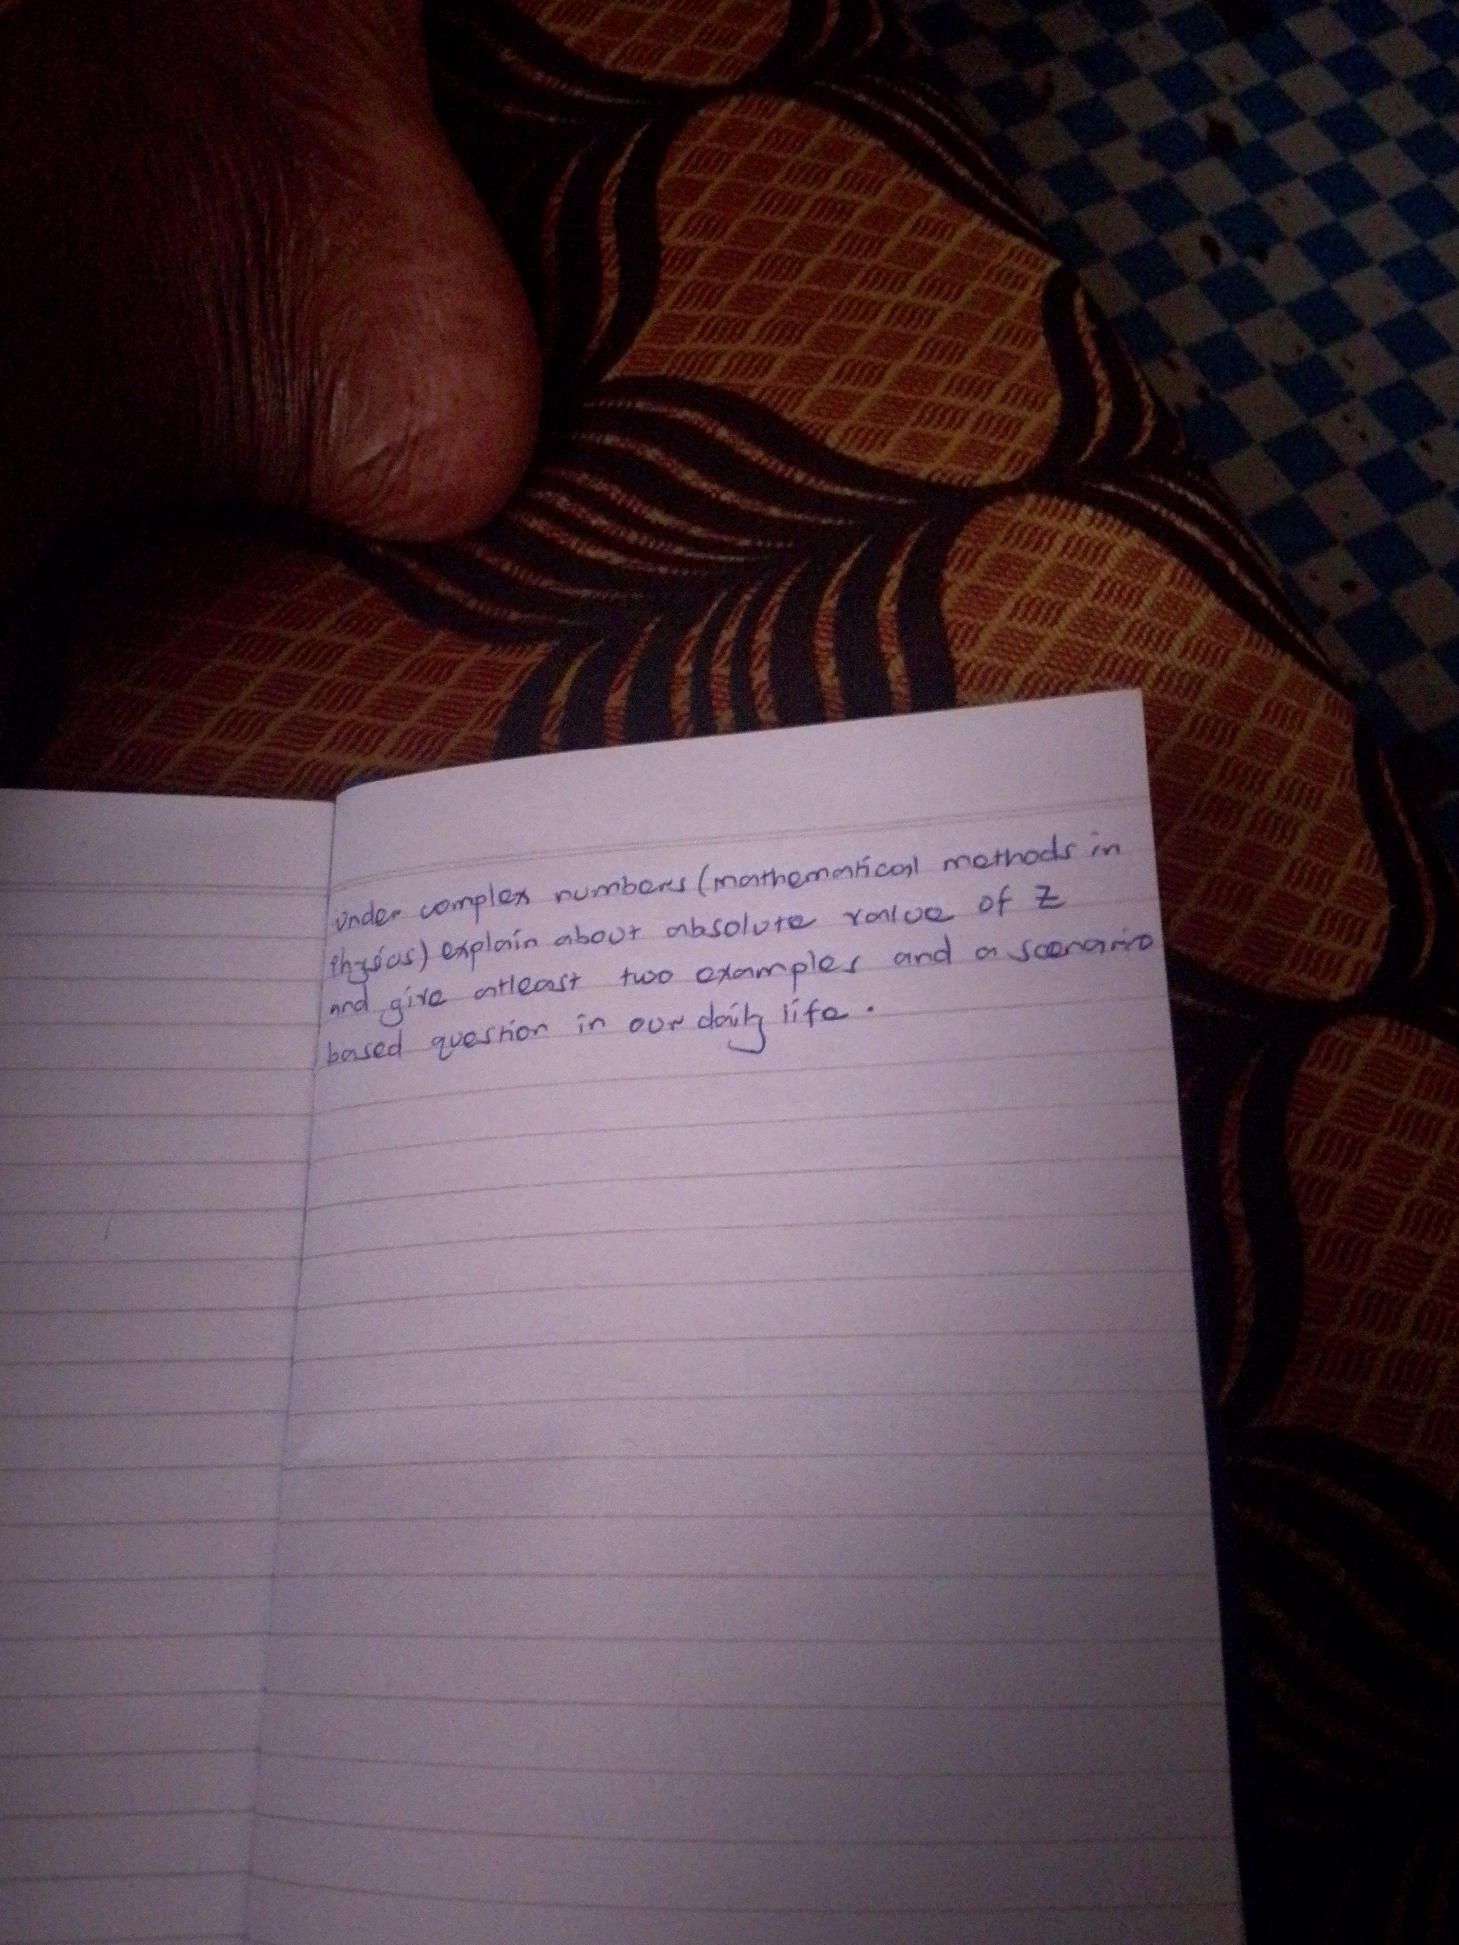 under complex numbers (mathematical methods in
physics) explain about absolute value of Z
and give atleast two examples and a scenario
based question in our daily life.